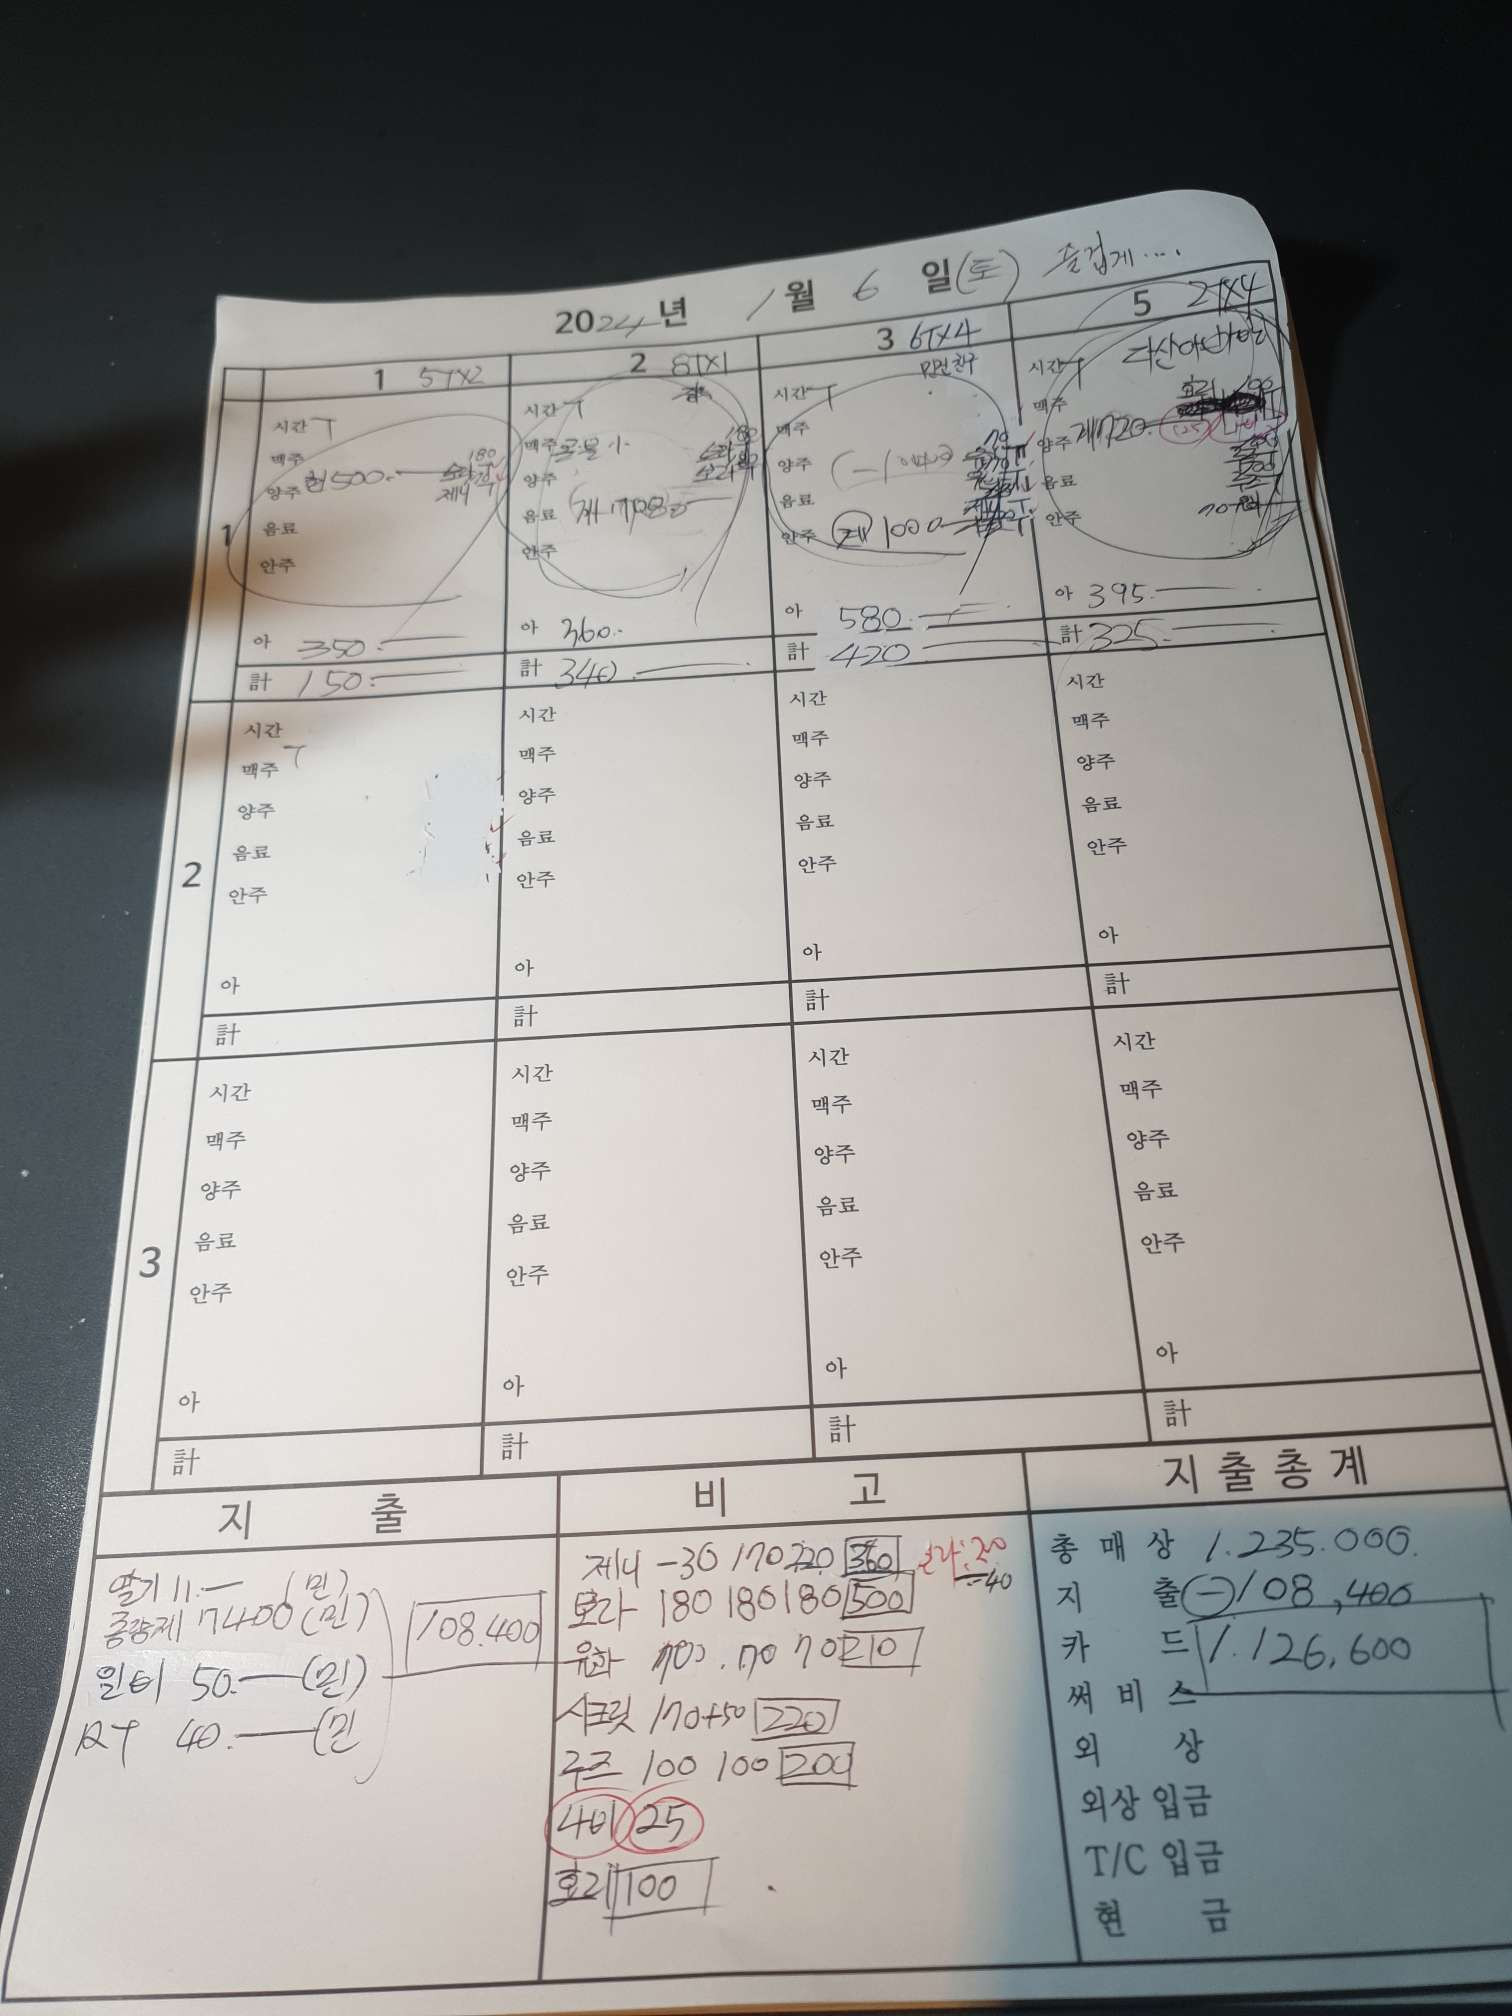 2024년 1월 6일(토) 즐겁게....
1 5TX2
2 8TX1
3 6TX4
5 2TX4
1
시간 T
맥주
양주 현500.
180
음료
안주
아 350.
計 150.
시간 T
맥주
180
양주
음료
안주
아 360.
計 340.
시간 T
맥주
양주
음료
안주 제 1000
아 580.
計 420
시간 T
맥주
양주 계720.
음료
안주
아 395.
計 325.
2
시간
맥주 T
양주
음료
안주
아
計
시간
맥주
양주
음료
안주
아
計
시간
맥주
양주
음료
안주
아
計
시간
맥주
양주
음료
안주
아
計
3
시간
맥주
양주
음료
안주
아
計
시간
맥주
양주
음료
안주
아
計
시간
맥주
양주
음료
안주
아
計
시간
맥주
양주
음료
안주
아
計
지 출
딸기 11.— (민)
종량제 7400 (민)
108.400
일비 50.— (민)
RT 40.— (민
비 고
제니 -30 170 220 360
보라 180 180 180 500
유화 70 70 210
시크릿 170+50 220
루즈 100 100 200
4비 25
효리 100
지출총계
총매상 1.235.000.
지출 (-) 108,400
카드 1.126,600
써비스
외상
외상입금
T/C 입금
현금